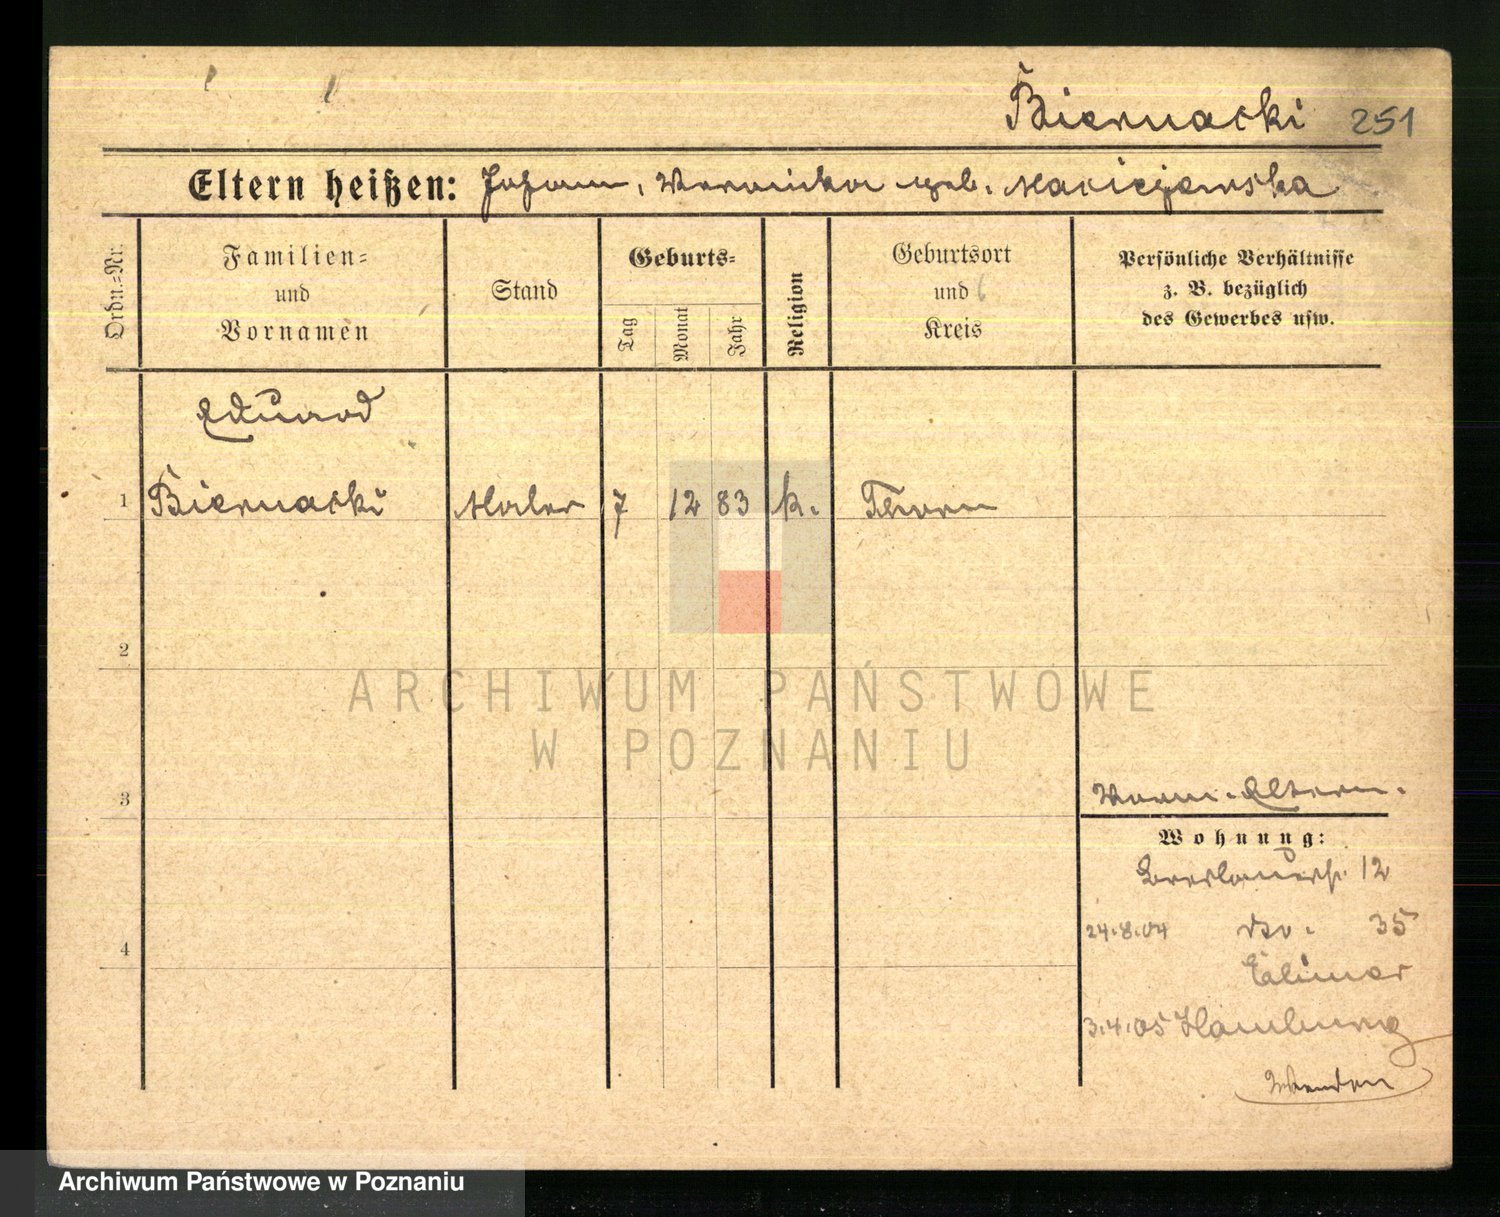 Biernacki 251
Eltern heißen: Johann, Veronika geb. Maciejewska
Ordn.=Nr.
Familien=
und
Vornamen
Stand
Geburts=
Tag
Monat
Jahr
Religion
Geburtsort
und
Kreis
Persönliche Verhältnisse
z. B. bezüglich
des Gewerbes usw.
Eduard
1 Biernacki Maler 7 12 83 k. Thorn
2
3
Eltern.
Wohnung:
Breslauerstr. 12
4
24.8.04 35
3.4.05 Hamburg
ARCHIWUM PAŃSTWOWE
W POZNANIU
Archiwum Państwowe w Poznaniu